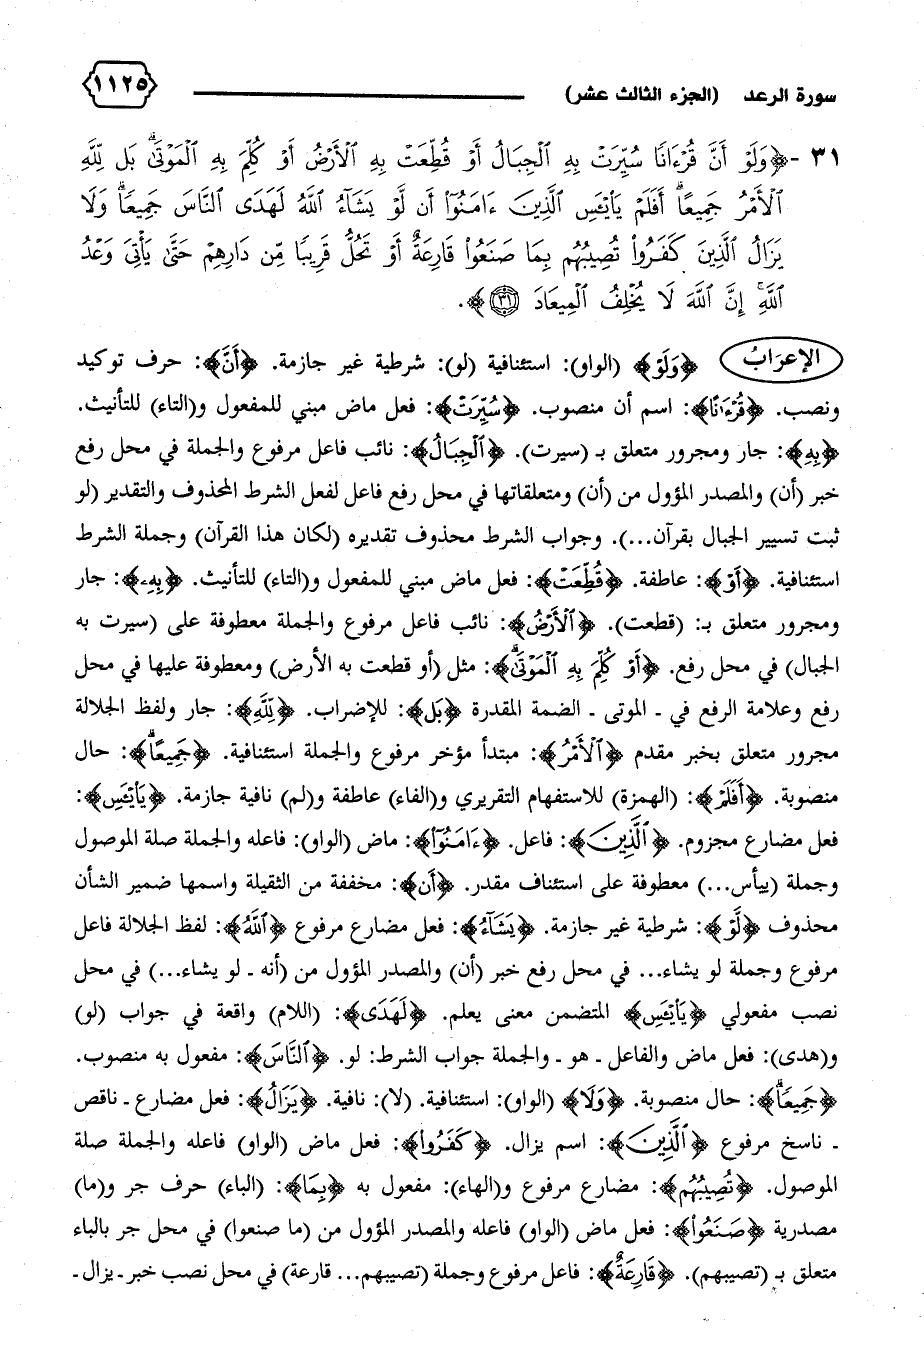 سورة الرعد (الجزء الثالث عشر) ١١٢٥
٣١ -﴿وَلَوْ أَنَّ قُرْءَانًا سُيِّرَتْ بِهِ ٱلْجِبَالُ أَوْ قُطِّعَتْ بِهِ ٱلْأَرْضُ أَوْ كُلِّمَ بِهِ ٱلْمَوْتَىٰۗ بَل لِّلَّهِ
ٱلْأَمْرُ جَمِيعًاۗ أَفَلَمْ يَا۟يْـَٔسِ ٱلَّذِينَ ءَامَنُوٓا۟ أَن لَّوْ يَشَآءُ ٱللَّهُ لَهَدَى ٱلنَّاسَ جَمِيعًاۗ وَلَا
يَزَالُ ٱلَّذِينَ كَفَرُوا۟ تُصِيبُهُم بِمَا صَنَعُوا۟ قَارِعَةٌ أَوْ تَحُلُّ قَرِيبًا مِّن دَارِهِمْ حَتَّىٰ يَأْتِىَ وَعْدُ
ٱللَّهِۚ إِنَّ ٱللَّهَ لَا يُخْلِفُ ٱلْمِيعَادَ ٣١﴾.
الإعرَابُ ﴿وَلَوْ﴾ (الواو): استئنافية (لو): شرطية غير جازمة. ﴿أَنَّ﴾: حرف توكيد
ونصب. ﴿قُرْءَانًا﴾: اسم أن منصوب. ﴿سُيِّرَتْ﴾: فعل ماض مبني للمفعول و(التاء) للتأنيث.
﴿بِهِ﴾: جار ومجرور متعلق بـ (سيرت). ﴿ٱلْجِبَالُ﴾: نائب فاعل مرفوع والجملة في محل رفع
خبر (أن) والمصدر المؤول من (أن) ومتعلقاتها في محل رفع فاعل لفعل الشرط المحذوف والتقدير (لو
ثبت تسيير الجبال بقرآن...). وجواب الشرط محذوف تقديره (لكان هذا القرآن) وجملة الشرط
استئنافية. ﴿أَوْ﴾: عاطفة. ﴿قُطِّعَتْ﴾: فعل ماض مبني للمفعول و(التاء) للتأنيث. ﴿بِهِ﴾: جار
ومجرور متعلق بـ: (قطعت). ﴿ٱلْأَرْضُ﴾: نائب فاعل مرفوع والجملة معطوفة على (سيرت به
الجبال) في محل رفع. ﴿أَوْ كُلِّمَ بِهِ ٱلْمَوْتَىٰۗ﴾: مثل (أو قطعت به الأرض) ومعطوفة عليها في محل
رفع وعلامة الرفع في ـ الموتى ـ الضمة المقدرة ﴿بَل﴾: للإضراب. ﴿لِّلَّهِ﴾: جار ولفظ الجلالة
مجرور متعلق بخبر مقدم ﴿ٱلْأَمْرُ﴾: مبتدأ مؤخر مرفوع والجملة استئنافية. ﴿جَمِيعًاۗ﴾: حال
منصوبة. ﴿أَفَلَمْ﴾: (الهمزة) للاستفهام التقريري و(الفاء) عاطفة و(لم) نافية جازمة. ﴿يَا۟يْـَٔسِ﴾:
فعل مضارع مجزوم. ﴿ٱلَّذِينَ﴾: فاعل. ﴿ءَامَنُوٓا۟﴾: ماض (الواو): فاعله والجملة صلة الموصول
وجملة (ييأس...) معطوفة على استئناف مقدر. ﴿أَن﴾: مخففة من الثقيلة واسمها ضمير الشأن
محذوف ﴿لَّوْ﴾: شرطية غير جازمة. ﴿يَشَآءُ﴾: فعل مضارع مرفوع ﴿ٱللَّهُ﴾: لفظ الجلالة فاعل
مرفوع وجملة لو يشاء... في محل رفع خبر (أن) والمصدر المؤول من (أنه ـ لو يشاء...) في محل
نصب مفعولي ﴿يَا۟يْـَٔسِ﴾ المتضمن معنى يعلم. ﴿لَهَدَى﴾: (اللام) واقعة في جواب (لو)
و(هدى): فعل ماض والفاعل ـ هو ـ والجملة جواب الشرط: لو. ﴿ٱلنَّاسَ﴾: مفعول به منصوب.
﴿جَمِيعًاۗ﴾: حال منصوبة. ﴿وَلَا﴾ (الواو): استئنافية. (لا): نافية. ﴿يَزَالُ﴾: فعل مضارع ـ ناقص
ـ ناسخ مرفوع ﴿ٱلَّذِينَ﴾: اسم يزال. ﴿كَفَرُوا۟﴾: فعل ماض (الواو) فاعله والجملة صلة
الموصول. ﴿تُصِيبُهُم﴾: مضارع مرفوع و(الهاء): مفعول به ﴿بِمَا﴾: (الباء) حرف جر و(ما)
مصدرية ﴿صَنَعُوا۟﴾: فعل ماض (الواو) فاعله والمصدر المؤول من (ما صنعوا) في محل جر بالباء
متعلق بـ (تصيبهم). ﴿قَارِعَةٌ﴾: فاعل مرفوع وجملة (تصيبهم... قارعة) في محل نصب خبر ـ يزال ـ